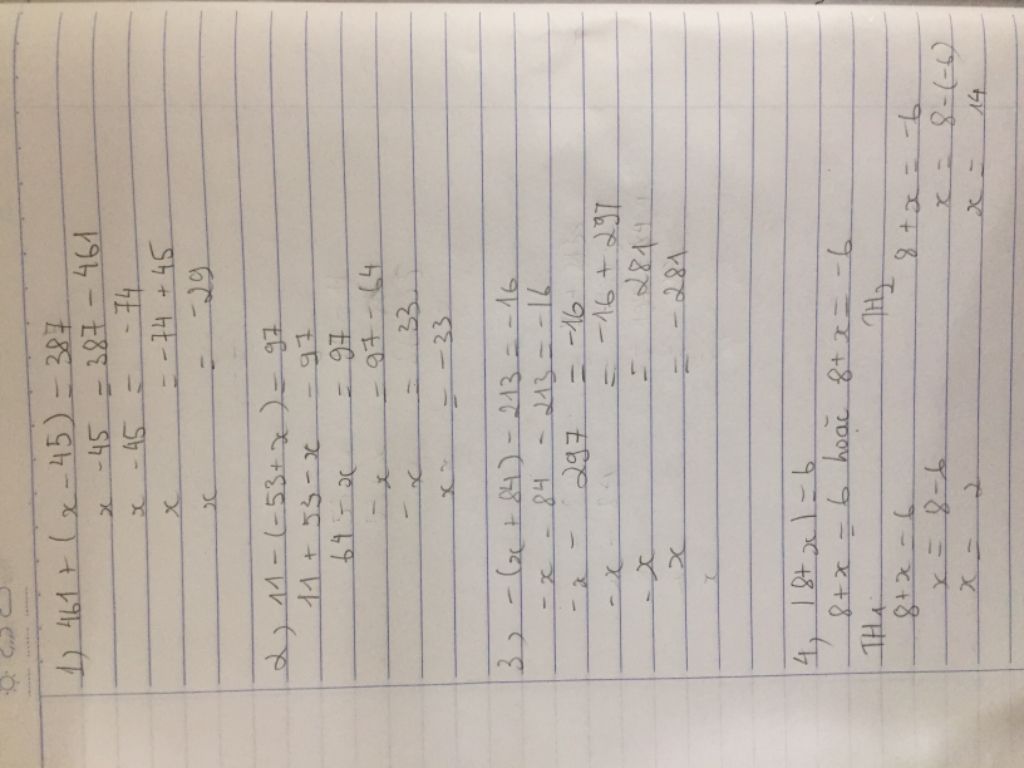 1) 461 + (x - 45) = 387
x - 45 = 387 - 461
x - 45 = -74
x = -74 + 45
x = -29
2) 11 - (-53 + x) = 97
11 + 53 - x = 97
64 - x = 97
- x = 97 - 64
- x = 33
x = -33
3) - (x + 84) - 213 = -16
- x - 84 - 213 = -16
- x - 297 = -16
- x = -16 + 297
- x = 281
x = -281
4) |8 + x| = 6
8 + x = 6 hoặc 8 + x = -6
TH1 TH2
8 + x = 6 8 + x = -6
x = 8 - 6 x = 8 - (-6)
x = 2 x = 14